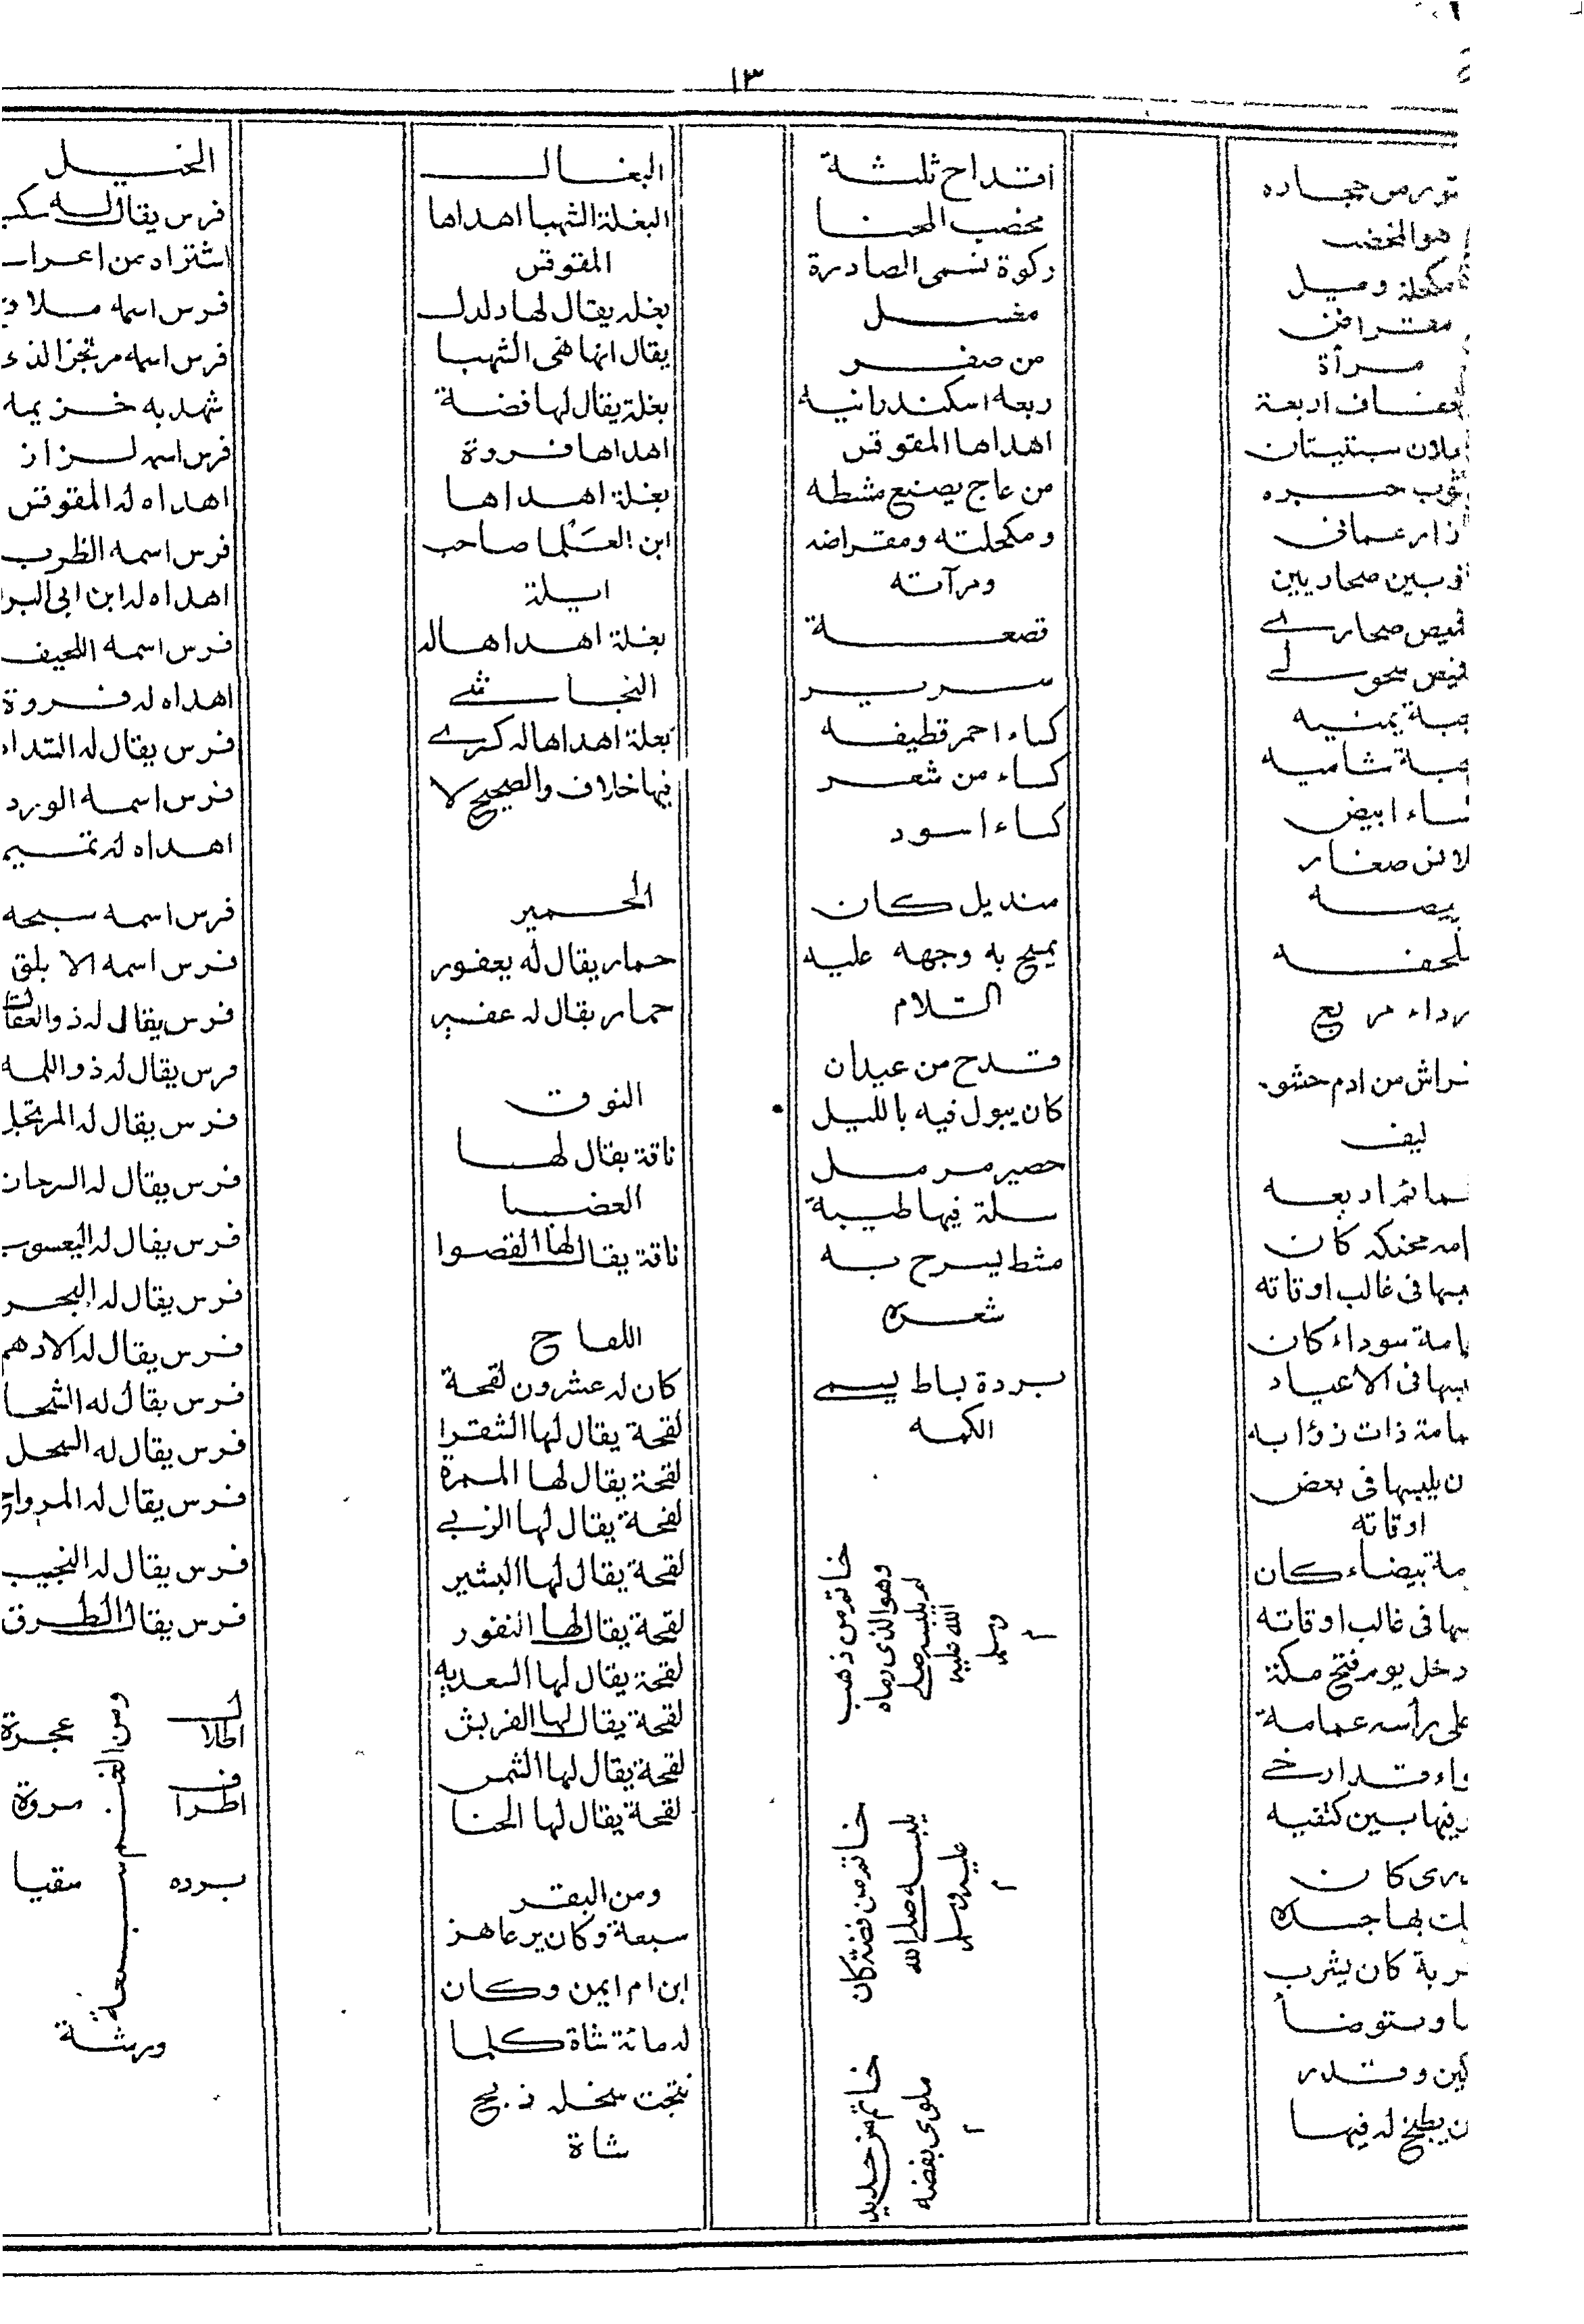 ١٣
تور من حجاره
هو المخضب
مكحلة وميل
مقراض
مرأة
اربعة
سبتيتان
ثوب حبره
عمانى
صحاريين
قميص صحارى
قميص سحولى
جبة يمنيه
جبة شاميه
ابيض
صغار
رداء مربع
فراش من ادم حشوه
ليف
اربعه
محنكه كان
فى غالب اوقاته
سوداء كان
فى الاعياد
ذات ذؤابه
ن يلبسها فى بعض
اوقاته
بيضاء كان
فى غالب اوقاته
دخل يوم فتح مكة
على رأسه عمامة
قد ارخى
بين كتفيه
كان
بها جسده
كان يشرب
وقدر
يطبخ له فيها
اقداح ثلثة
مخضب الحنا
ركوة تسمى الصادرة
مغسل
من صفر
ربعه اسكندرانيه
اهداها المقوقس
من عاج يصنع مشطه
ومكحلته ومقراضه
ومرآته
قصعة
سرير
كساء احمر قطيفه
كساء من شعر
كساء اسود
منديل كان
يمسح به وجهه عليه
السلام
قدح من عيدان
كان يبول فيه بالليل
حصير مرمل
سلة فيها طيبة
مشط يسرح به
شعره
بردة باط يسمى
الكمه
خاتم من ذهب
وهو الذى رماه
لم يلبسه صلى
الله عليه
وسلم
خاتم من فضة كان
يلبسه صلى الله
عليه وسلم
خاتم من حديد
ملوى بفضه
البغال
البغلة الشهبا اهداها
المقوقس
بغله يقال لها دلدل
يقال انها هى الشهبا
بغلة يقال لها فضة
اهداها فروة
بغلة اهداها
ابن العَلما صاحب
ايلة
بغلة اهداها له
النجاشى
بغلة اهداها له كسرى
فيها خلاف والصحيح لا
الحمير
حمار يقال له يعفور
حمار يقال له عفير
النوق
ناقة يقال لها
العضبا
ناقة يقال لها القصوا
اللقاح
كان له عشرون لقحة
لقحة يقال لها الشقرا
لقحة يقال لها السمرة
لقحة يقال لها الزبى
لقحة يقال لها البشير
لقحة يقال لها النفور
لقحة يقال لها السعديه
لقحة يقال لها
لقحة يقال لها
لقحة يقال لها الحنا
ومن البقر
سبعة وكان يرعاهن
ابن ام ايمن وكان
له مائة شاة كلما
نتجت سخله ذبح
شاة
الخيل
فرس يقال له سكب
اشتراه من اعراب
فرس اسمه
فرس اسمه مرتجز الذى
شهد به خزيمه
فرس اسمه لزاز
اهداه له المقوقس
فرس اسمه الظرب
اهداه له ابن ابى البرا
فرس اسمه اللحيف
اهداه له فروة
فرس يقال له
فرس اسمه الورد
اهداه له تميم
فرس اسمه سبحه
فرس اسمه الابلق
فرس يقال له ذو العقال
فرس يقال له ذو اللمه
فرس يقال له المرتجل
فرس يقال له السرحان
فرس يقال له اليعسوب
فرس يقال له البحر
فرس يقال له الادهم
فرس يقال له الشحا
فرس يقال له السجل
فرس يقال له المرواح
فرس يقال له النجيب
فرس يقال له الطرف
ومن الغنم سبعة
اطلال عجرة
اطراف
برده سقيا
ورشة